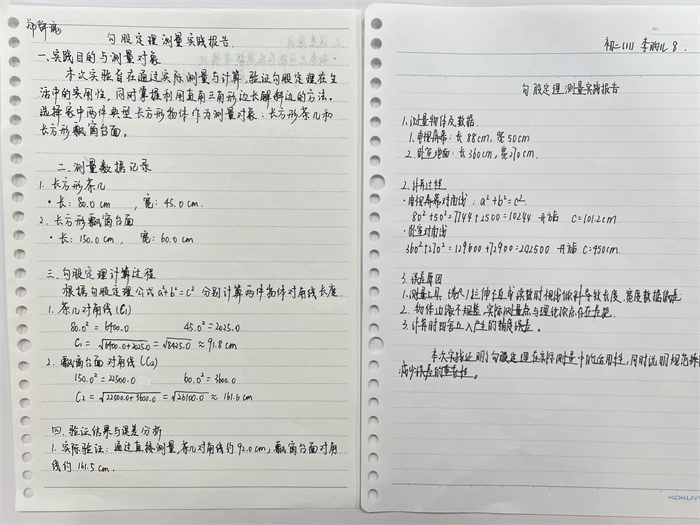 勾股定理测量实践报告
一.实践目的与测量对象
本次实验旨在通过实际测量与计算,验证勾股定理在生
活中的实用性,同时掌握利用直角三角形边长解斜边的方法。
选择家中两件典型长方形物体作为测量对象:长方形茶几和
长方形飘窗台面。
二.测量数据记录
1. 长方形茶几
·长:80.0 cm , 宽:45.0 cm.
2. 长方形飘窗台面
·长:150.0 cm , 宽:60.0 cm
三.勾股定理计算过程
根据勾股定理公式 a²+b²=c² 分别计算两件物体对角线长度.
1. 茶几对角线(C₁)
80.0²=6400.0 45.0²=2025.0
C₁ = √6400.0+2025.0 = √8425.0 ≈ 91.8 cm
2. 飘窗台面对角线(C₂)
150.0²=22500.0 60.0²=3600.0
C₂ = √22500.0+3600.0 = √26100.0 ≈ 161.6 cm
四.验证结果与误差分析
1. 实际验证:通过直接测量,茶几对角线约92.0cm,飘窗台面对角
线约161.5cm.
初二(11) 李 8
勾股定理测量实践报告
1.测量物体及数据.
1.电视屏幕:长88cm,宽50cm
2.卧室地面:长360cm,宽270cm.
2.计算过程
·电视屏幕对角线: a²+b²=c².
80²+50²=7744+2500=10244 开方后 C=101.2cm
·卧室对角线
360²+270²=129600+72900=202500 开方后 C=450cm.
3.误差原因
1.测量工具(卷尺)拉伸不直或读数时视线倾斜导致长度、宽度数据偏差
2. 物体边缘不规整,实际测量点与理论顶点存在差距.
3.计算时四舍五入产生的精度误差。
本次实践证明了勾股定理在实际测量中的应用性,同时说明规范操
减少误差的重要性。
KOKUYO